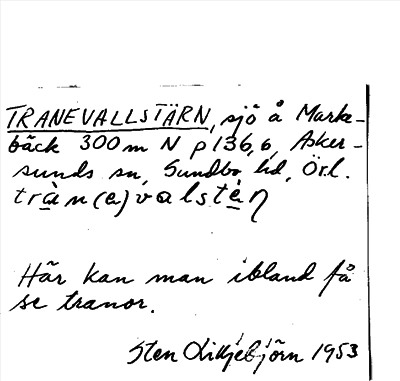 TRANEVALLSTÄRN, sjö å Marke-
bäck 300m N p 136,6, Asker-
sunds sn, Sundbo hd, Örl.
trà̱n(e)valstè̱ṇ
Här kan man ibland få
se tranor.
Sten Liljebjörn 1953